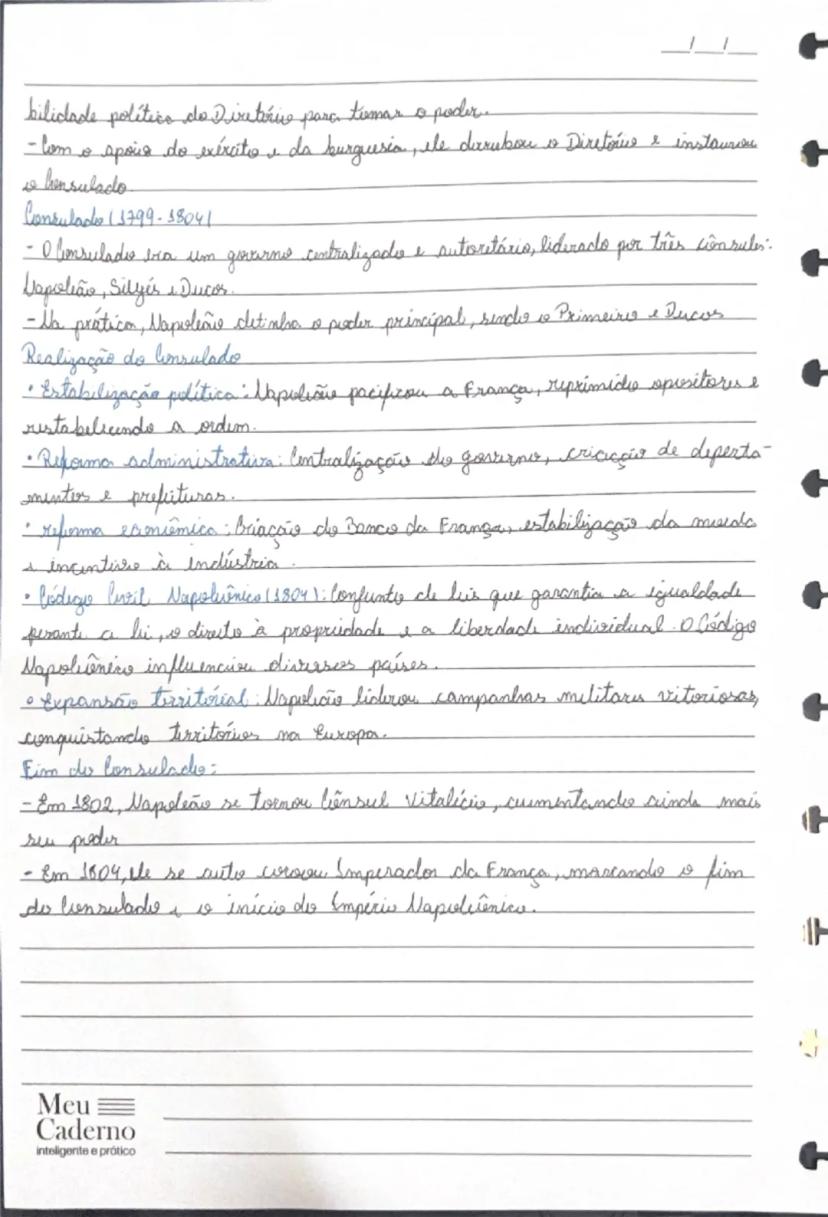 __/__/__
bilidade política do Diretório para tomar o poder.
- Com o apoio do exército e da burguesia, ele derrubou o Diretório e instaurou
o Consulado.
Consulado (1799-1804)
- O Consulado era um governo centralizado e autoritário, liderado por três cônsules:
Napoleão, Siéyès e Ducos.
- Na prática, Napoleão detinha o poder principal, sendo o Primeiro e Ducos
Realização do Consulado
• Estabilização política: Napoleão pacificou a França, reprimido opositores e
restabelecendo a ordem.
• Reforma administrativa: Centralização do governo, criação de departa-
mentos e prefeituras.
• reforma econômica: Criação do Banco da França, estabilização da moeda
e incentivo à indústria.
• Código Civil Napoleônico (1804): Conjunto de leis que garantia a igualdade
perante a lei, o direito à propriedade e a liberdade individual. O Código
Napoleônico influenciou diversos países.
• Expansão territórial: Napoleão liderou campanhas militares vitoriosas,
conquistando territórios na Europa.
Fim do Consulado:
- Em 1802, Napoleão se tornou Cônsul Vitalício, aumentando ainda mais
seu poder
- Em 1804, ele se auto coroou Imperador da França, marcando o fim
do Consulado e o início do Império Napoleônico.
Meu
Caderno
inteligente e prático